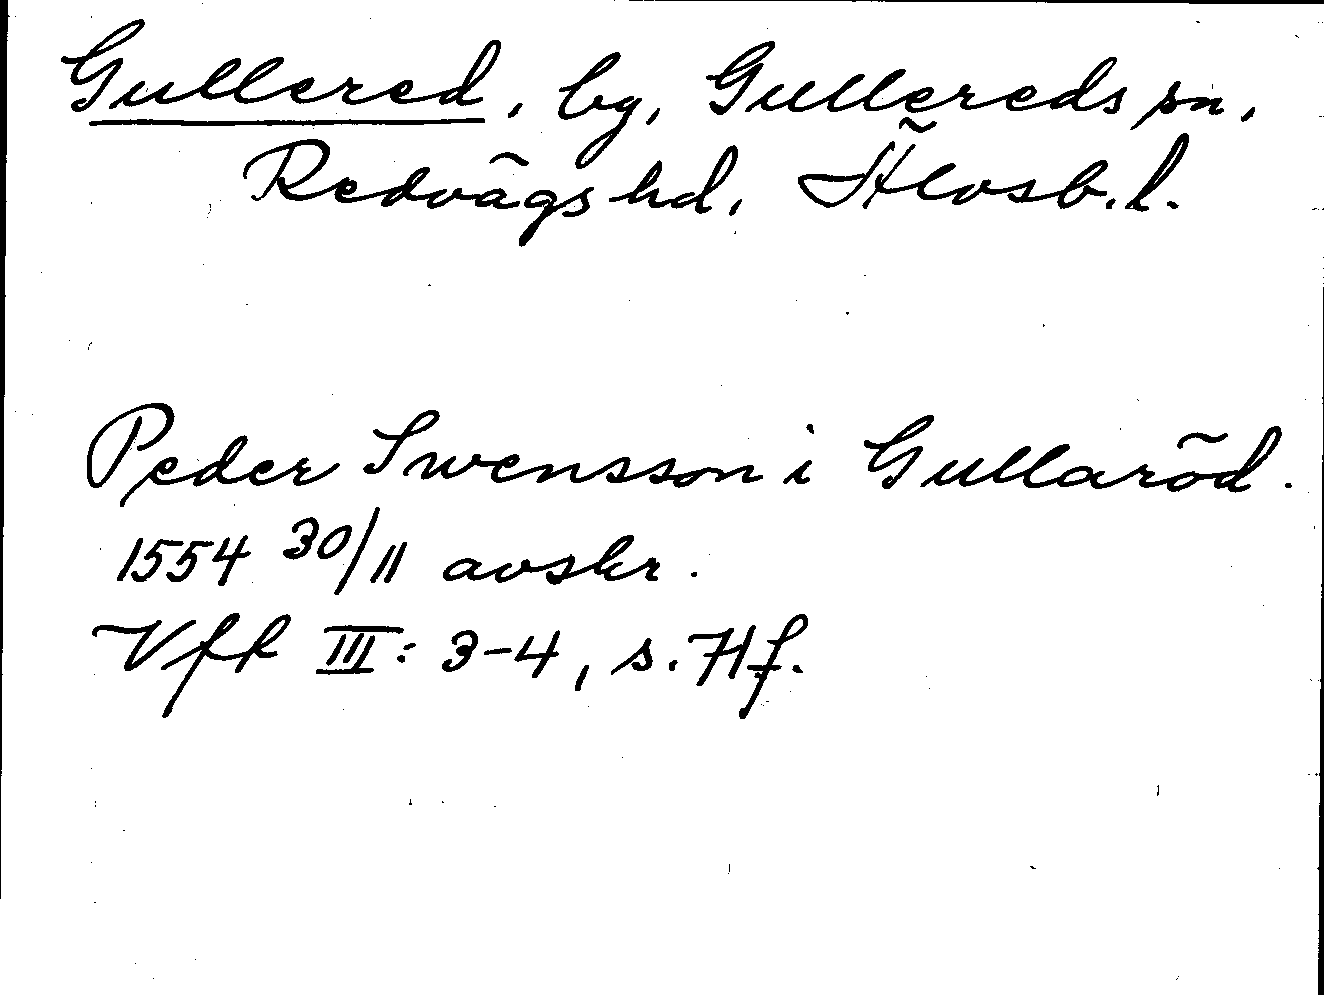 Gullered, by, Gullereds sn,
Redvägs hd, Älvsb. l.
Peder Swensson i Gullaröd.
1554 30/11 avskr.
Vff III: 3-4, s. 71 f.